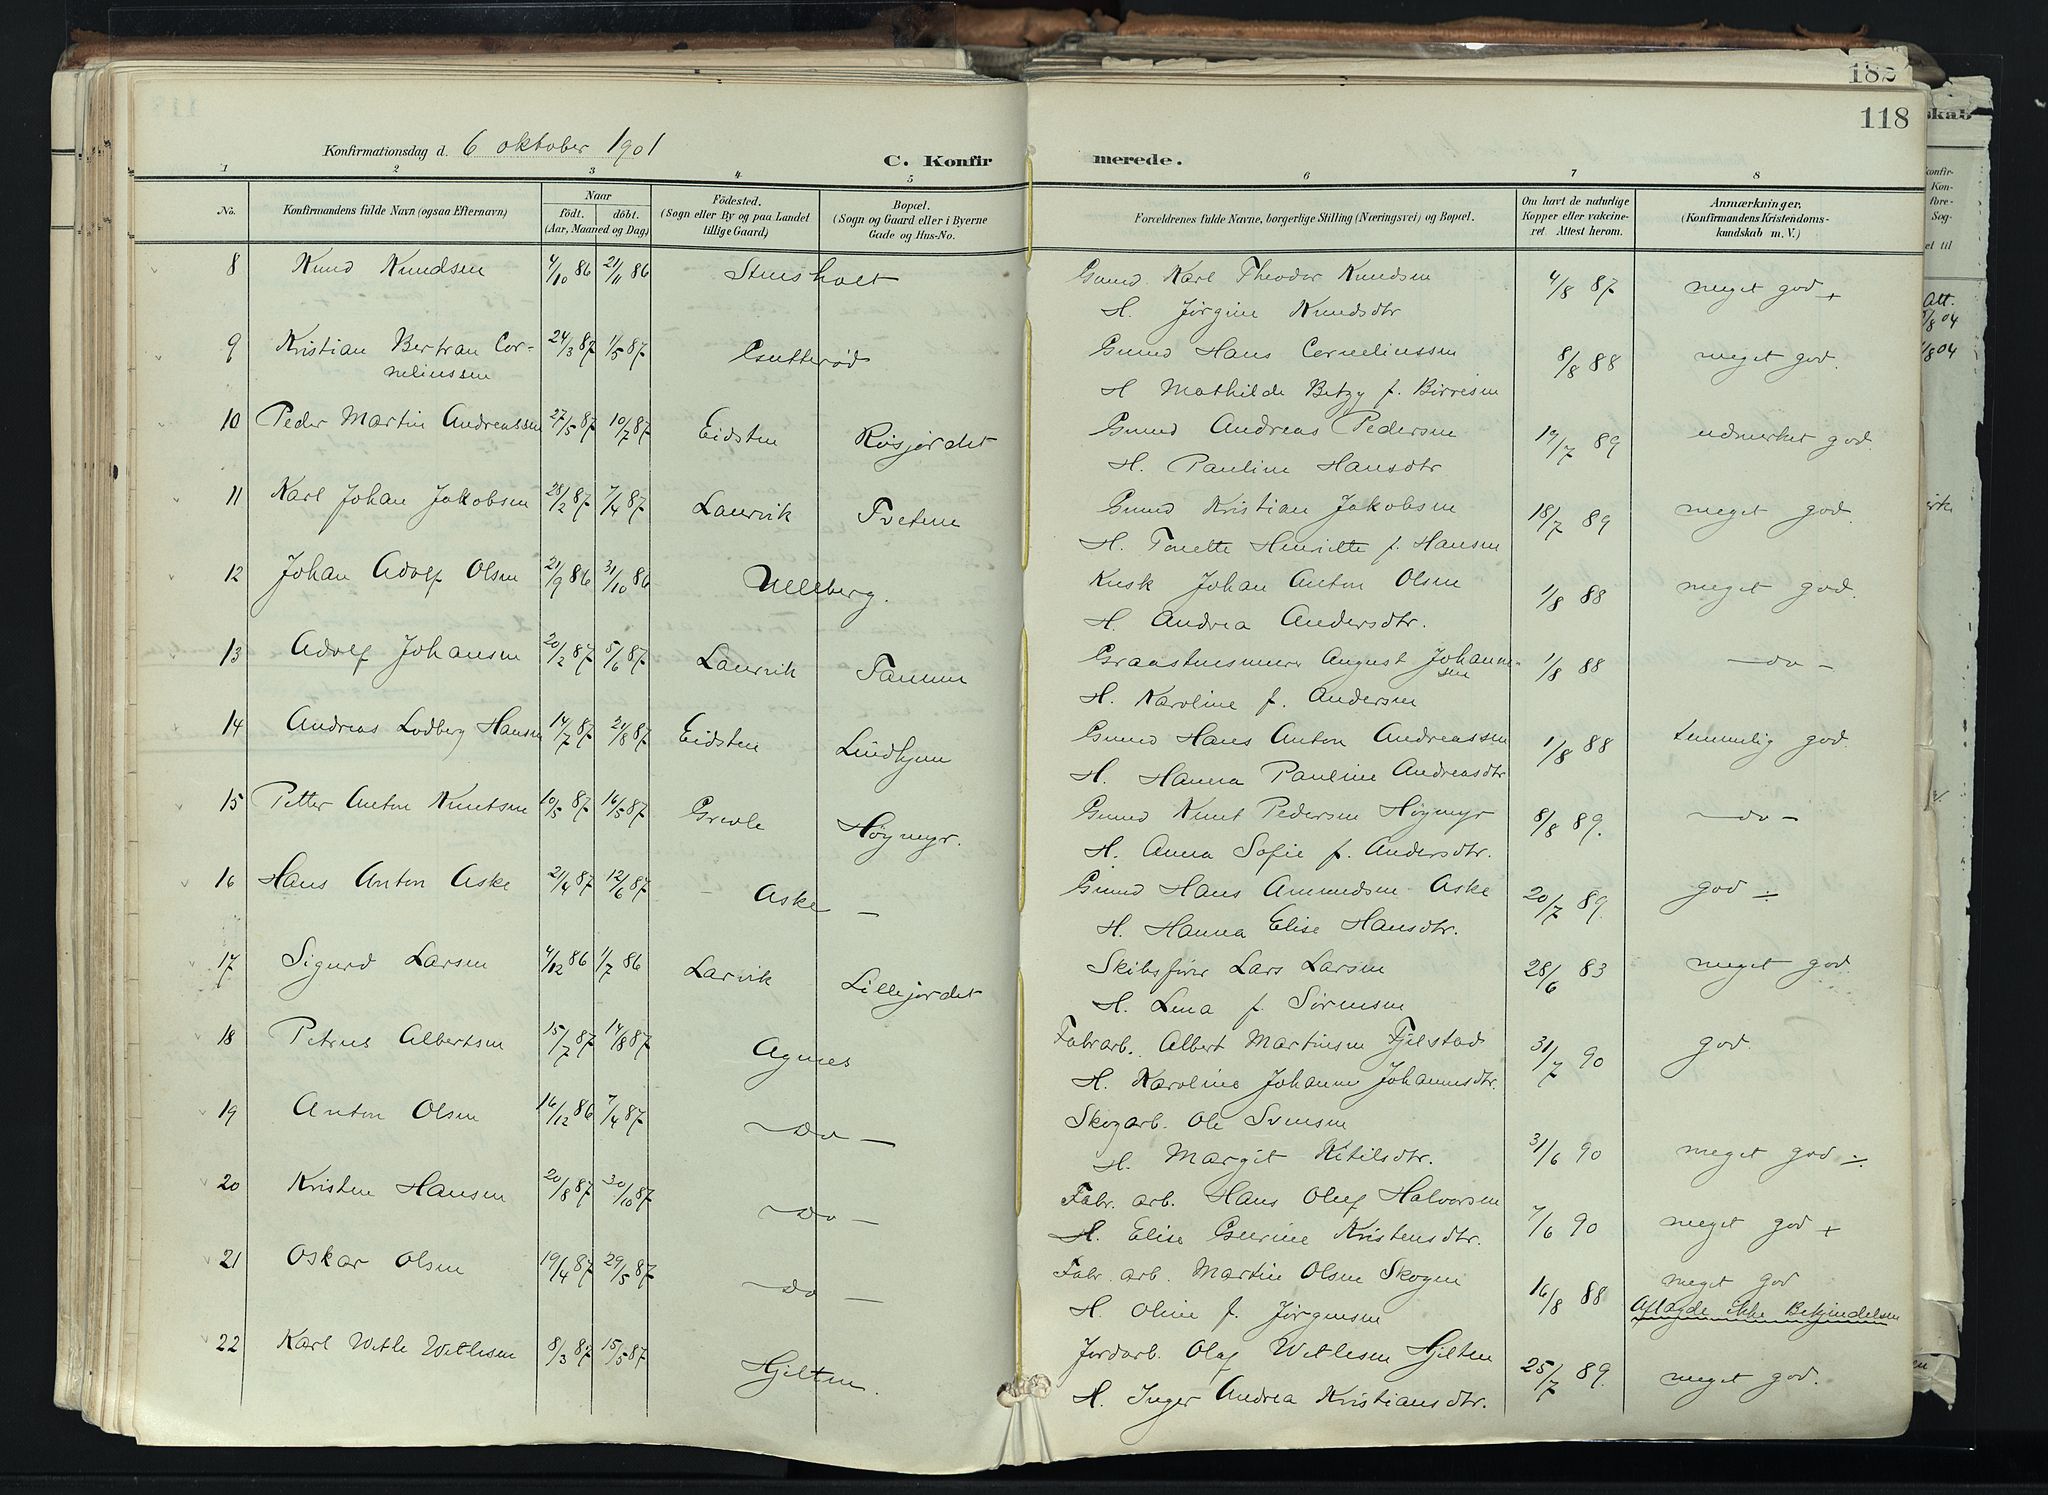 182
118
skab
Konfirmationsdag d. 6 oktober 1901
C. Konfir merede.
1 2 3 4 5 6 7 8
No.
Konfirmandens fulde Navn (ogsaa Efternavn)
Naar
födt. döbt.
(Aar, Maaned og Dag)
Födested.
(Sogn eller By og paa Landet
tillige Gaard)
Bopæl.
(Sogn og Gaard eller i Byerne
Gade og Hus-No.
Forældrenes fulde Navne, borgerlige Stilling (Næringsvei) og Bopæl.
Om havt de naturlige
Kopper eller vakcine-
ret. Attest herom.
Anmærkninger,
(Konfirmandens Kristendoms-
kundskab m. V.)
8 Knud Knudsen 4/10 86 21/11 86 Stensholt Gmd. Karl Theodor Knudsen 4/8 87 meget god +
H. Jørgine Knudsdtr
9 Kristian Bertran Cor- 24/3 87 1/5 87 Gutterød Gmd Hans Corneliussen 8/8 88 meget god.
neliussen H Mathilde Betzy f. Birresen
10 Peder Martin Andreassen 27/5 87 10/7 87 Eidsten Røsjordet Gmd Andreas Pedersen 19/7 89 udmerket god.
H. Pauline Hansdtr
11 Karl Johan Jakobsen 28/2 87 7/4 87 Laurvik Tvetene Gmd Kristian Jakobsen 18/7 89 meget god.
H. Tonette Henriette f. Hansen
12 Johan Adolf Olsen 21/9 86 31/10 86 Ulleberg. Kusk Johan Anton Olsen 1/8 88 meget god.
H. Andrea Andersdtr.
13 Adolf Johansen 20/2 87 5/6 87 Laurvik Tanum Graastensmurer August Johanne- 1/8 88 — do —
sen
H. Karoline f. Andersen
14 Andreas Lodberg Hansen 14/7 87 21/8 87 Eidsten Lindhjem Gmd Hans Anton Andreassen 1/8 88 temmelig god.
H. Hanna Pauline Andreasdtr
15 Petter Anton Knutsen 10/5 87 16/5 87 Grevle Høymyr. Gmd Knut Pedersen Høymyr 8/8 89. — do —
H. Anna Sofie f. Andersdtr.
16 Hans Anton Aske 21/4 87 12/6 87 — Aske — Gmd Hans Amundsen Aske 20/7 89. god ÷
H. Hanna Elise Hansdtr.
17 Sigurd Larsen 4/12 86 1/7 86 Larvik Lillejordet Skibsfører Lars Larsen 28/6 83 meget god
H. Lena f. Sørensen
18 Petrus Albertsen 15/7 87 14/8 87 Agnes Fabrarb. Albert Martinsen Fjelstad 31/7 90 god.
H. Karoline Johanne Johannesdtr.
19 Anton Olsen 16/12 86 7/4 87 — Do — Skogarb. Ole Svensen
H. Margit Ketilsdtr. 31/6 90 meget god ÷
20 Kristen Hansen 20/8 87 30/10 87 — Do — Fabr. arb. Hans Oluf Halvorsen 7/6 90 meget god +
H. Elise Gurine Kristensdtr.
21 Oskar Olsen 19/4 87 29/5 87 — Do — Fabr. arb. Martin Olsen Skogen 16/8 88 meget god
H. Oline f. Jørgensen Aflagde ikke Bekjendelsen
22 Karl Wetle Wetlesen 8/3 87 15/5 87 Hjelten. Jordarb. Olaf Wetlesen Hjelten 25/7 89. meget god.
H. Inger Andrea Kristiansdtr.